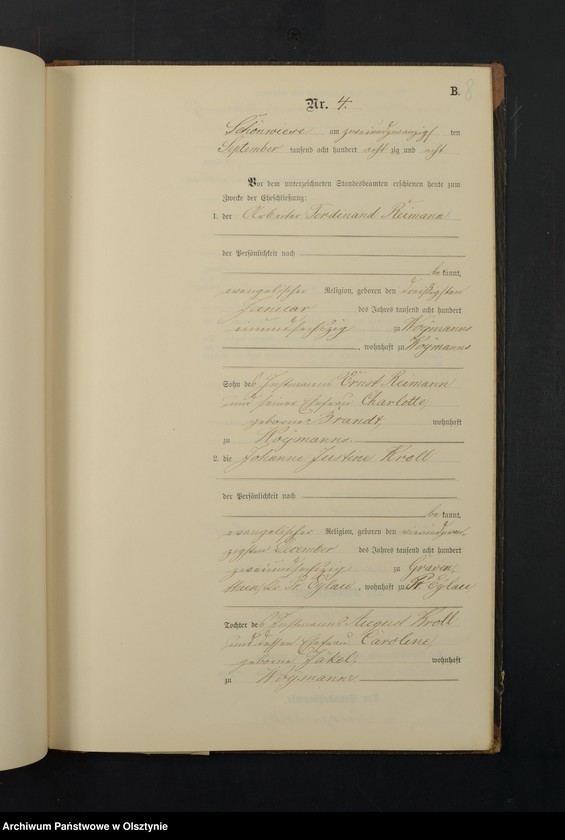 B. 8
Nr. 4.
Schönwiese am zweiundzwanzigsten ten
September tausend acht hundert acht zig und acht
Vor dem unterzeichneten Standesbeamten erschienen heute zum
Zwecke der Eheschließung:
1. der Arbeiter Ferdinand Reimann
der Persönlichkeit nach
be kannt,
evangelischer Religion, geboren den dreißigsten
Januar des Jahres tausend acht hundert
einundsechzig zu Wojmanns
, wohnhaft zu Wojmanns
Sohn des Instmanns Ernst Reimann
und seiner Ehefrau Charlotte,
geborene Brandt, wohnhaft
zu Wojmanns.
2. die Johanne Justine Kroll
der Persönlichkeit nach
be kannt,
evangelischer Religion, geboren den vierundzwan-
zigsten Dezember des Jahres tausend acht hundert
zweiundsechzig zu
Pr. Eylau, wohnhaft zu Pr. Eylau
Tochter des Instmanns August Kroll
und dessen Ehefrau Caroline,
geborne Jäkel, wohnhaft
zu Wojmanns
Archiwum Państwowe w Olsztynie